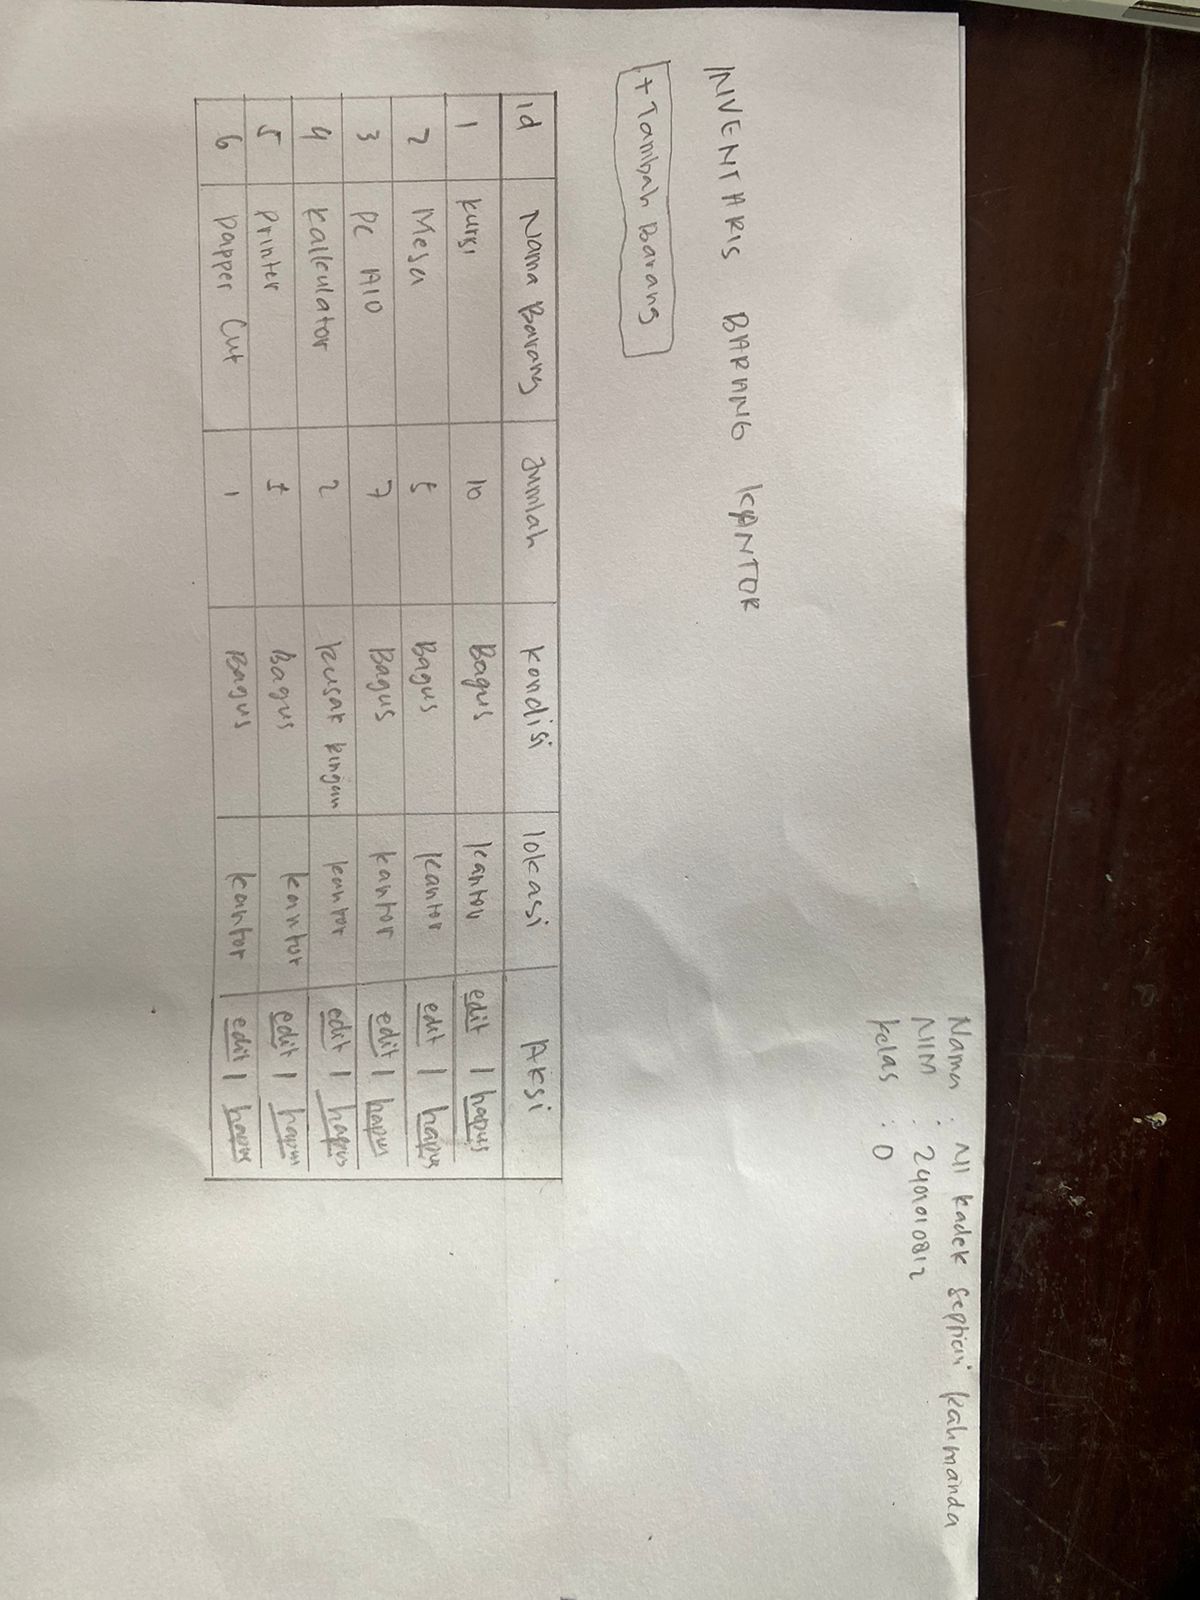 Nama : Ni kadek septiari kahmanda
NIM : 2401010812
kelas : O
INVENTARIS BARANG KANTOR
+ Tambah Barang
Id Nama Barang Jumlah kondisi lokasi Aksi
1 kursi 10 Bagus kantor edit | hapus
2 Mesa 5 Bagus kantor edit | hapus
3 PC AIO 7 Bagus kantor edit | hapus
4 kallculator 2 Rusak Ringan kantor edit | hapus
5 Printer Bagus kantor edit | hapus
6 Papper Cut 1 Bagus kantor edit | hapus